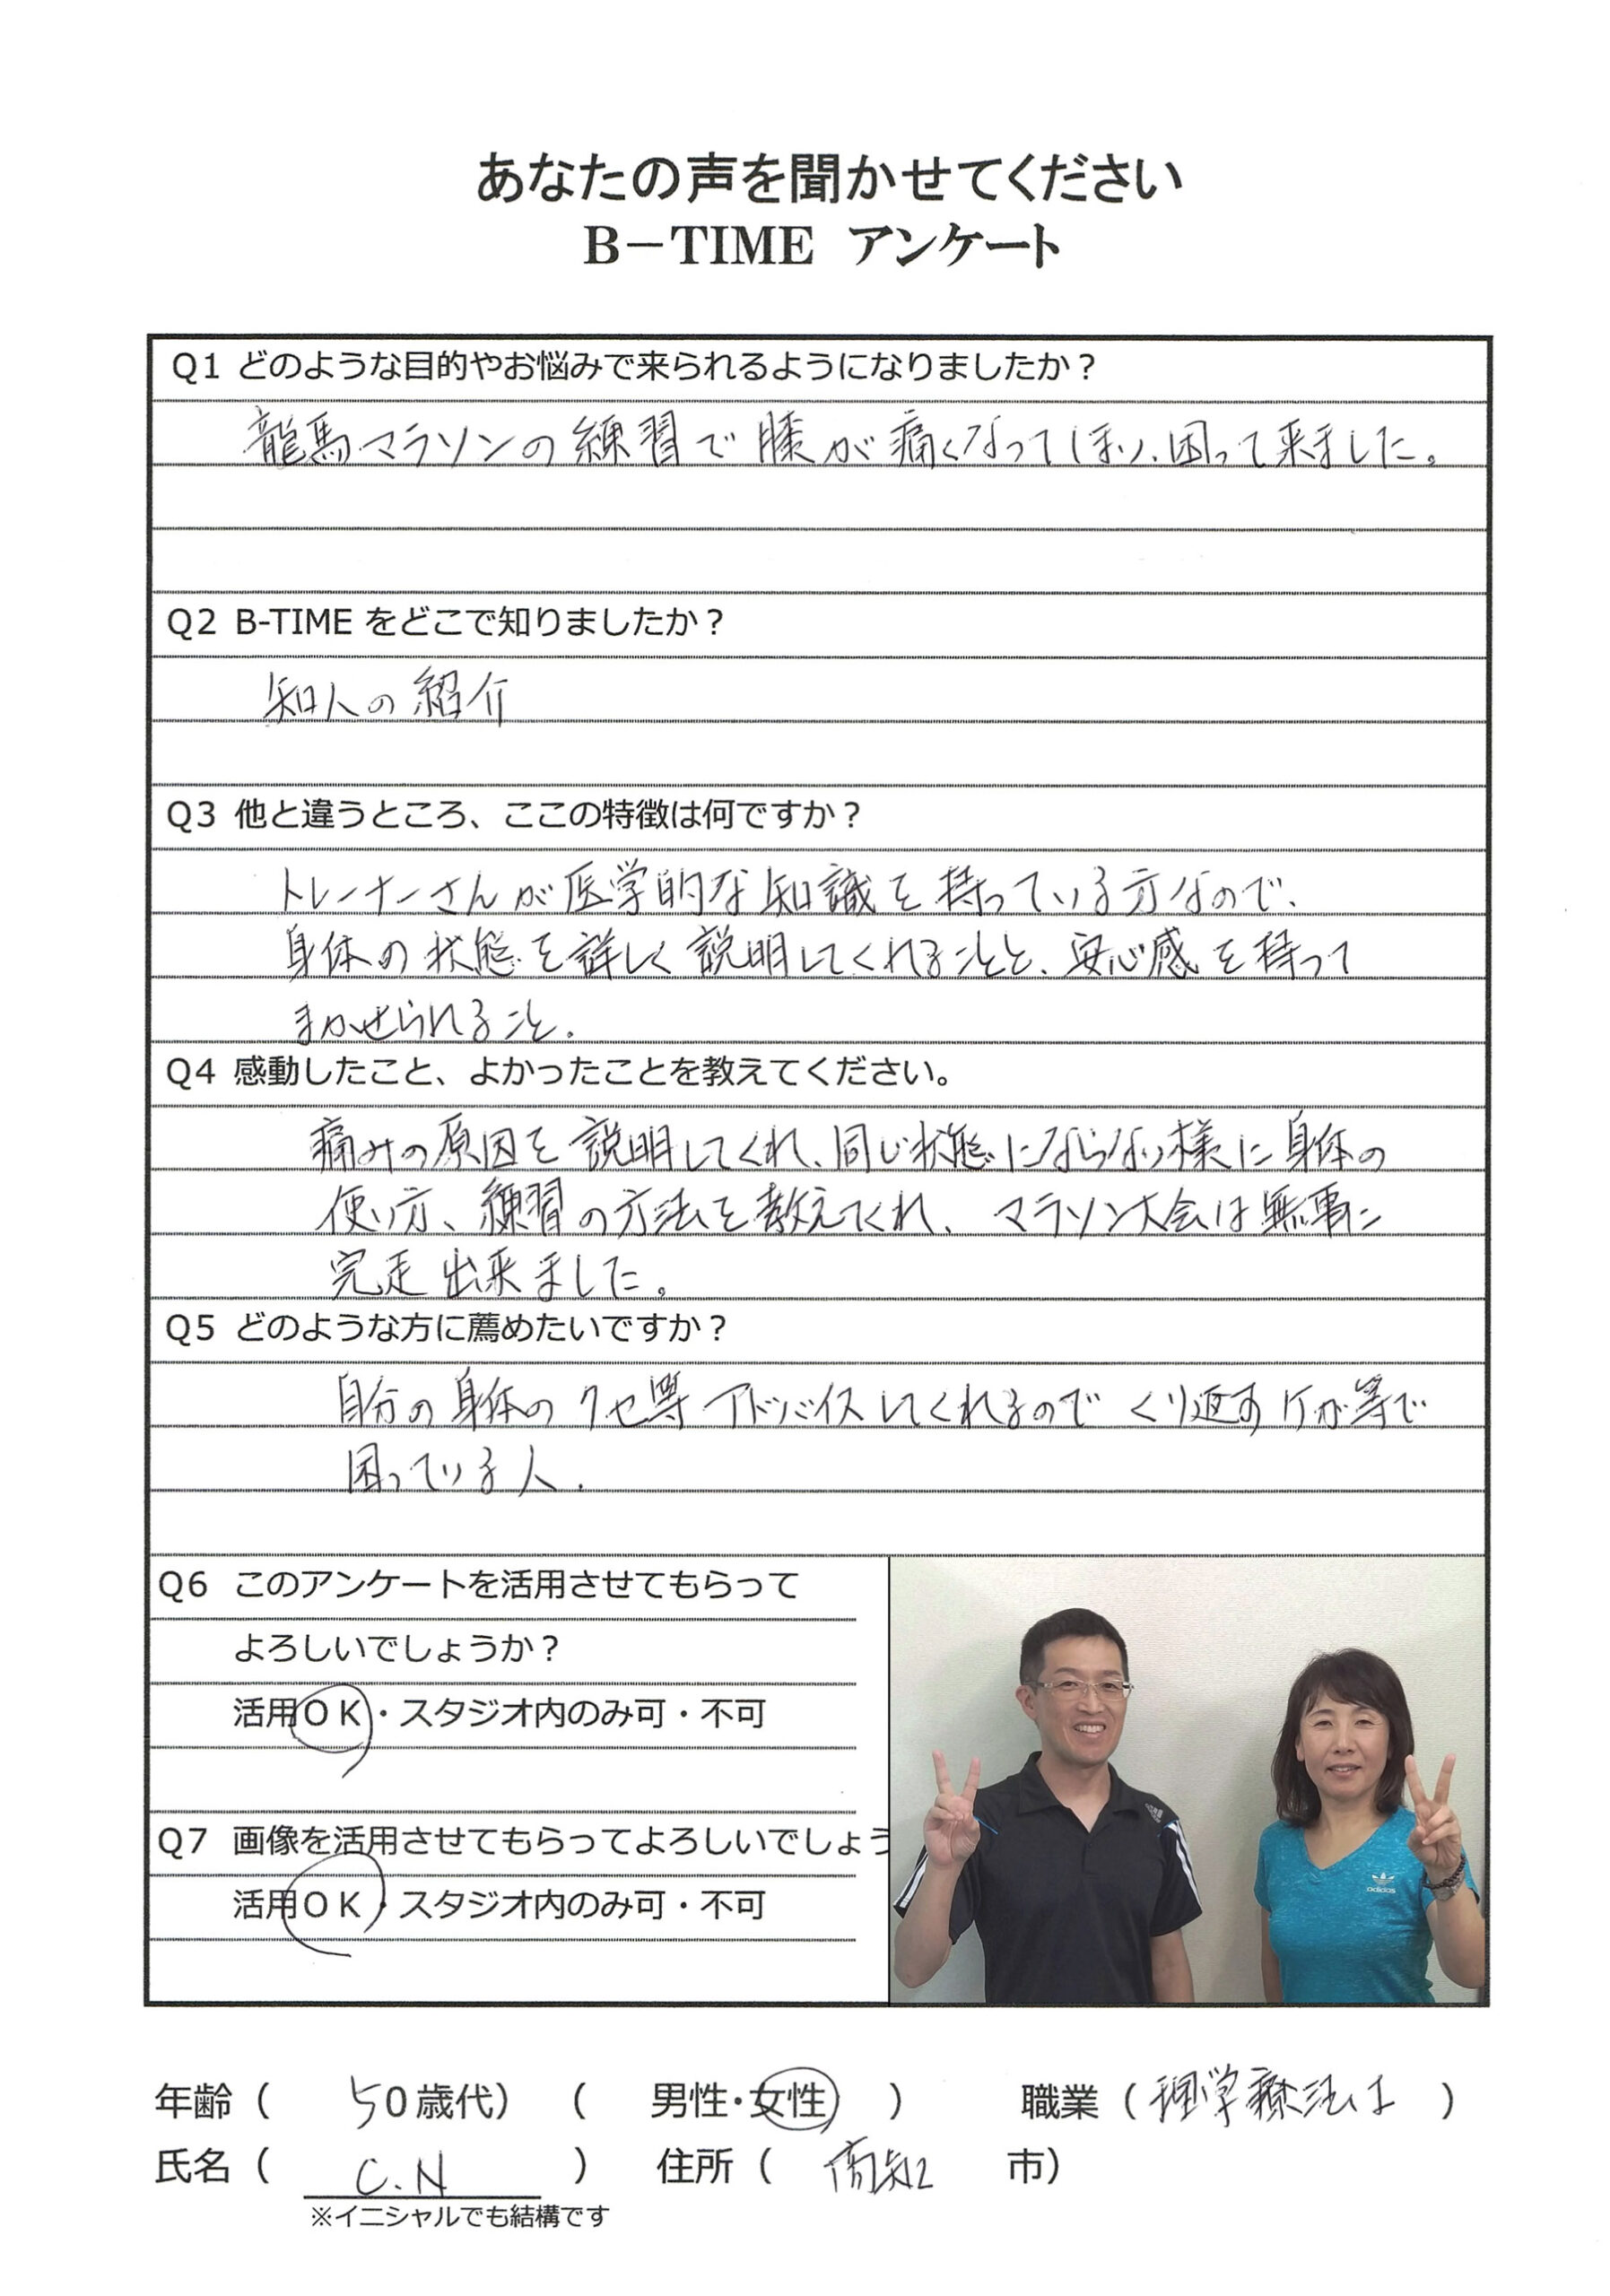 あなたの声を聞かせてください
B－TIME アンケート
Q1 どのような目的やお悩みで来られるようになりましたか？
龍馬マラソンの練習で膝が痛くなってしまい、困って来ました。
Q2 B-TIME をどこで知りましたか？
知人の紹介
Q3 他と違うところ、ここの特徴は何ですか？
トレーナーさんが医学的な知識を持っている方なので、
身体の状態を詳しく説明してくれることと、安心感を持って
まかせられること。
Q4 感動したこと、よかったことを教えてください。
痛みの原因を説明してくれ、同じ状態にならない様に身体の
使い方、練習の方法を教えてくれ、マラソン大会は無事に
完走出来ました。
Q5 どのような方に薦めたいですか？
自分の身体のクセ等アドバイスしてくれるのでくり返すケガ等で
困っている人.
Q6 このアンケートを活用させてもらって
よろしいでしょうか？
活用ＯＫ・スタジオ内のみ可・不可
Q7 画像を活用させてもらってよろしいでしょう
活用ＯＫ・スタジオ内のみ可・不可
adidas
年齢（ 50歳代） （ 男性・女性 ） 職業（ 理学療法士 ）
氏名（ C.N ） 住所（ 高知 市）
※イニシャルでも結構です